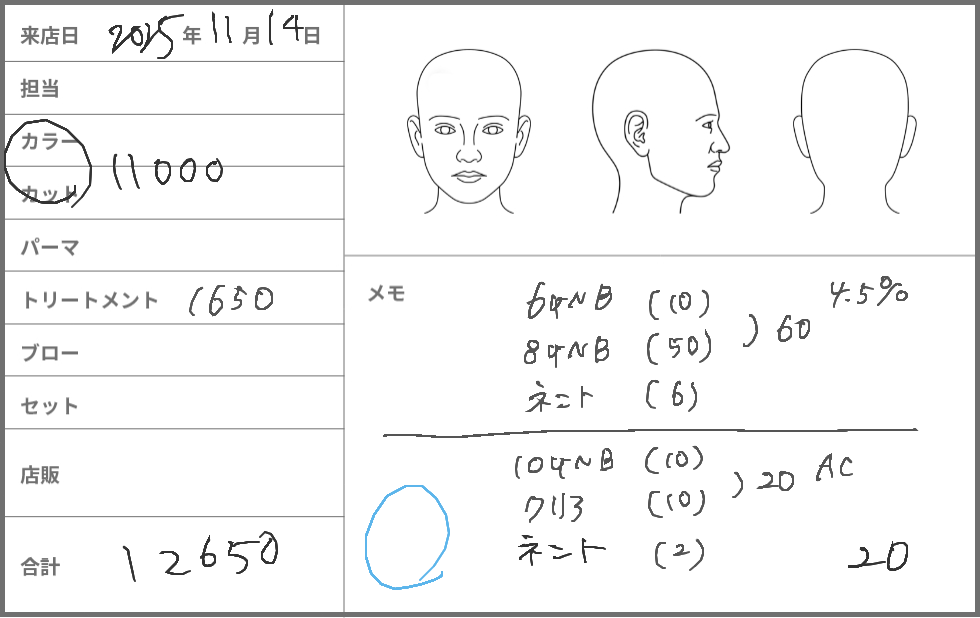 来店日 2025年11月14日
担当
カラー
カット 11000
パーマ
トリートメント 1650
ブロー
セット
店販
合計 12650
メモ
6サNB (10) 4.5%
8サNB (50) ) 60
ネント (6)
10サNB (10)
クリア (10) ) 20 AC
ネント (2) 20